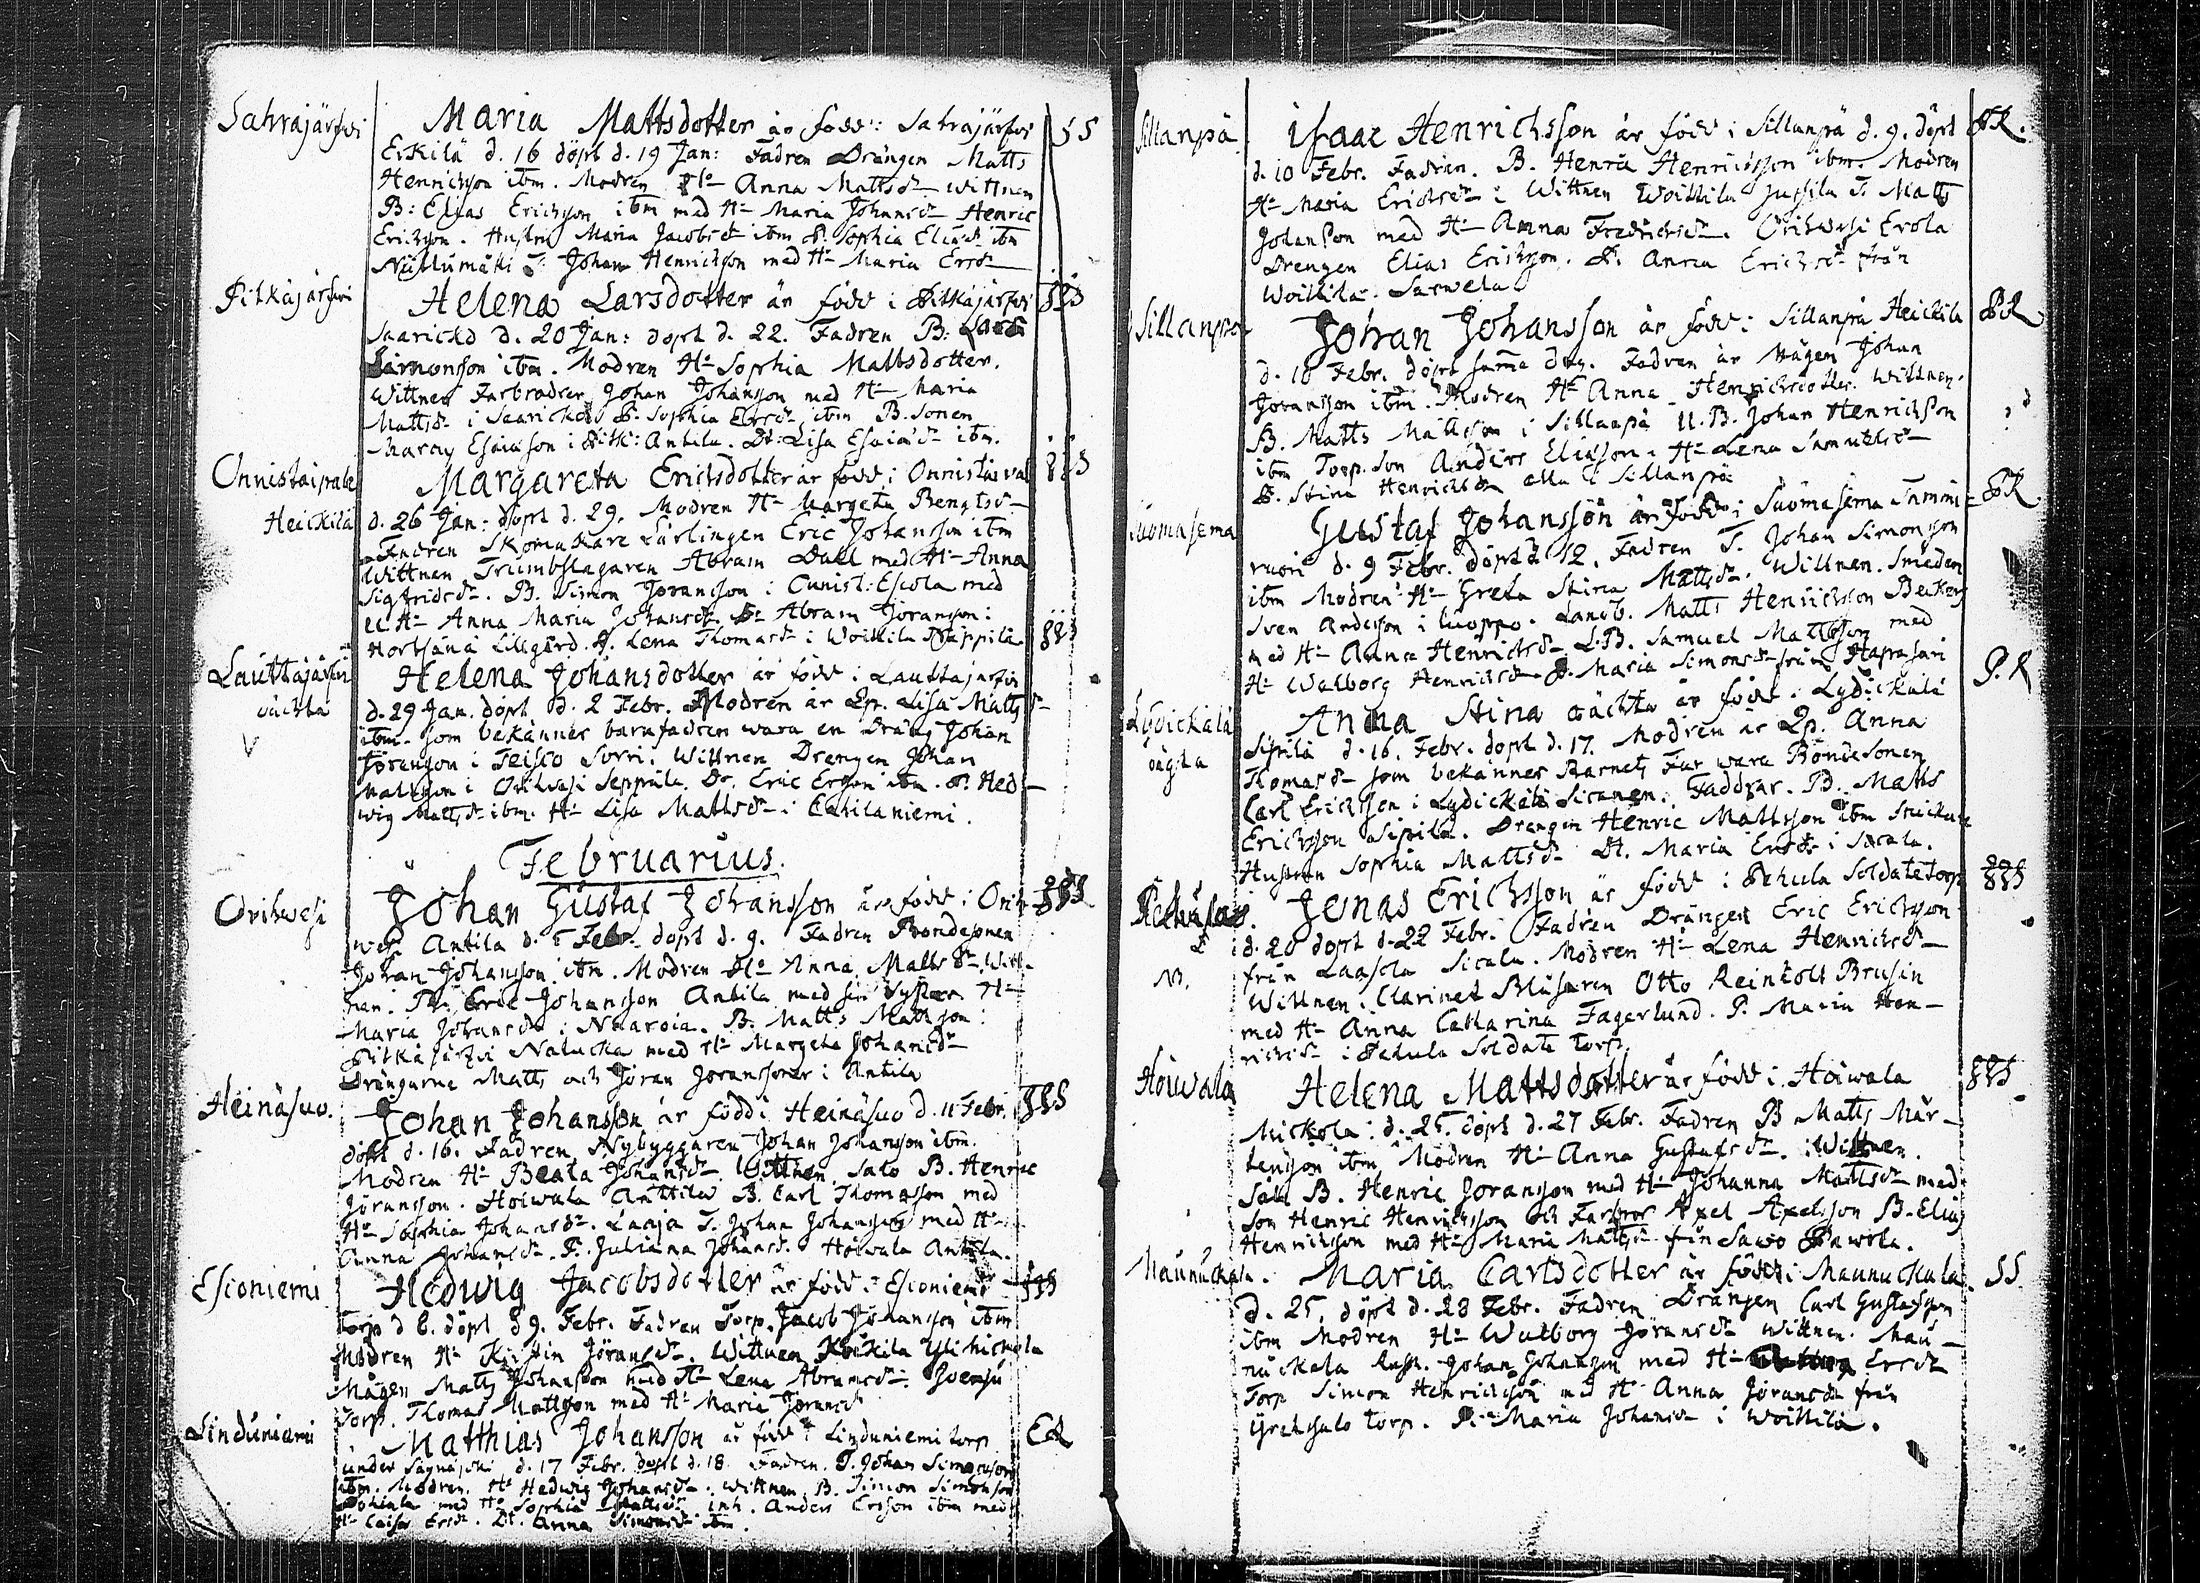 Sahrajärfwi
Maria Mattsdotter är född i Sahrajärfwi SS
Erkilä d. 16 döpt d. 19 Jan: Fadren Drängen Matts
Henricsson ibm. Modren Anna Mattsdr Wittnen
B: Elias Ericsson ibm med Hu Maria Johansdr Henric
Ericsson. Hustru Maria Jacobsdr ibm P. Sophia Eliædr ibm
T. Johan Henricsson med Hu Maria Ersdr
Pitkäjärfwi
Helena Larsdotter är född i Pitkäjärfwi
Saarickå d. 20 Jan: döpt d. 22. Fadren B: Lars
Simonsson ibm. Modren Hu Sophia Mattsdotter.
Wittnen Farbrodren Johan Johansson med Hu Maria
Mattsdr i Saarickå P. Sophia Ersdr ibm B. Sonen
Esaiasson i Pitk: Antila. Dt: Lisa Esaiædr ibm.
Onnistaipale
Heickilä
Margareta Ericsdotter är född i Onnistaival
d. 26 Jan: döpt d. 29. Modren Hu Margeta Bengtsdr
Fadren Skomakare Lärlingen Eric Johansson ibm
Wittnen Trumbslagaren Abram Dahl med Hu Anna
Sigfridsdr. B. Simon Göransson i Onnist: Escola med
Hu Anna Maria Johansdr. Abram Göransson i
Lillgård. P. Lena Thomasdr i Woitila
Lauttajärfwi
oächta
V
Helena Johansdotter är född i Lauttajärfwi
d. 29 Jan. döpt d. 2 Febr. Modren är Lp. Lisa Mattsdr
ibm. som bekänner barnafadren wara en Dräng Johan
Göransson i Teisco Sorri. Wittnen Drengen Johan
Mattsson i Orihwesi Seppälä. Dr. Eric Ersson ibm. P. Hed-
wig Mattsdr ibm. Hu Lisa Mattsdr i
Februarius.
Orihwesi
Johan Gustaf Johansson är född i Orih-
wesi Antila d. Febr. döpt d. 9. Fadren Bondesonen
Johan Johansson ibm. Modren Hu Anna Mattsdr. Witt-
nen. Eric Johansson Antila med sin Syster Hu
Maria Johansdr i Naaroia. B. Matts Mattsson i
Pitkäjärfwi Nalucka med Hu Margeta Johansdr
Drängarne Matts och Jöran Jöranssöner i Antila
Heinäsuo.
Johan Johansson är född i Heinäsuo d. 11 Febr.
döpt d. 16. Fadren Nybyggaren Johan Johansson ibm.
Modren Hu Beata Johansdr. Wittnen Salo B. Henric
Jöransson. Hoiwala Anttila B. Carl Thomasson med
Hu Sophia Johansdr. T. Johan Johansson med Hu
Anna Johansdr. P. Juliana Johansdr. Hoiwala Antila.
Esconiemi
Hedwig Jacobsdotter är född i Esconiemi
Torp d 6. döpt d 9. Febr. Fadren Torp. Jacob Johansson ibm
Modren Hu Kirstin Jöransdr. Wittnen
Mågen Matts Johansson med Hu Lena Abramsdr.
Torp. Thomas Mattsson med Hu Maria Jöransdr
Linduniemi
Matthias Johansson är född i Linduniemi torp
under d. 17 Febr. döpt d. 18. Fadren T. Johan Simonsson
ibm. Modren Hu Hedwig Johansdr. Wittnen B. Simon Simonsson
Pohjala med Hu Sophia Mattsdr inh. Anders Ersson ibm med
Hu Caisa Ersdr. Dt. Anna Simonsdr ibm.
Sillanpä
Isaac Henrichsson är född i Sillanpä d. 9. döpt
d. 10 Febr. Fadren. B. Henric Henrichsson ibm Modren
Hu Maria Erichsdr i Wittnen Woitila Jussila T. Matts
Johansson med Hu Anna Fredrichsdr. Orihwesi Erola
Drengen Elias Erichsson. P. Anna Erichsdr från
Woitila. Sarwela
Sillanpä
Johan Johansson är född i Sillanpä Heickila
d. 10 Febr. döpt samma dag. Fadren är Mågen Johan
Göransson ibm. Modren Hu Anna Henrichsdotter. Wittnen
B. Matts Mattsson i Sillanpä U. B. Johan Henrichsson
ibm Torp. son Anders Eliasson. Hu Lena Samuelsdr
P. Stina Henrichsdr alla i Sillanpä
Suomasema
Gustaf Johansson är född i Suomasema Tammi-
ruori d. 9 Febr. döpt d 12. Fadren T. Johan Simonsson
ibm Modren Hu Greta Stina Mattsdr. Wittnen. Smeden
Sven Andersson i Luoppo. Landb. Matts Henrichsson
med Hu Anna Henrichsdr. L.B. Samuel Mattsson med
Hu Walborg Henrichsdr. P. Maria Simonsdr från Haprasari
Lydickälä
oägta
P. K
Anna Stina oächta är född i Lydickälä
Sipilä d. 16. Febr. döpt d. 17. Modren är Lp. Anna
Thomasdr som bekänner Barnets Far wara Bondesonen
Carl Erichsson i Lydickälä Sicanen. Faddrar. B. Matts
Erichsson Sipilä. Drengen Henric Mattsson ibm
Hustrun Sophia Mattsdr Dt. Maria Ersdr i Sacala.
Jonas Erichsson är född i Pehula Soldatetorp
d. 20 döpt d. 22 Febr. Fadren Drängen Eric Erichsson
från Laasola Sicala. Modren Hu Lena Henrichsdr
Wittnen. Clarinet Blåsaren Otto Reinholt Brusin
med Hu Anna Catharina Fagerlund. P. Maria Hen-
richsdr i Pehula Soldate torp.
Hoiwala
Helena Mattsdotter är född i Hoiwala
Mickola d. 25. döpt d. 27 Febr. Fadren B Matts Mår-
tensson ibm Modren Hu Anna Gustafsdr. Wittnen.
Salo B. Henric Jöransson med Hu Johanna Mattsdr med
Son Henric Henrichsson och Farbror Axel Axelsson B. Elias
Henrichsson med Hu Maria Mattsdr från Sawo Pawola.
Maunuckala.
Maria Carlsdotter är född i Maunuckala SS
d. 25. döpt d. 28 Febr. Fadren Drängen Carl Gustafsson
ibm Modren Hu Walborg Jöransdr Wittnen. Mau-
nuckala Rusth. Johan Johansson med Hu Ersdr
Torp Simon Henrichsson med Hu Anna Jöransdr från
torp. P. Maria Johansdr i Woitila.